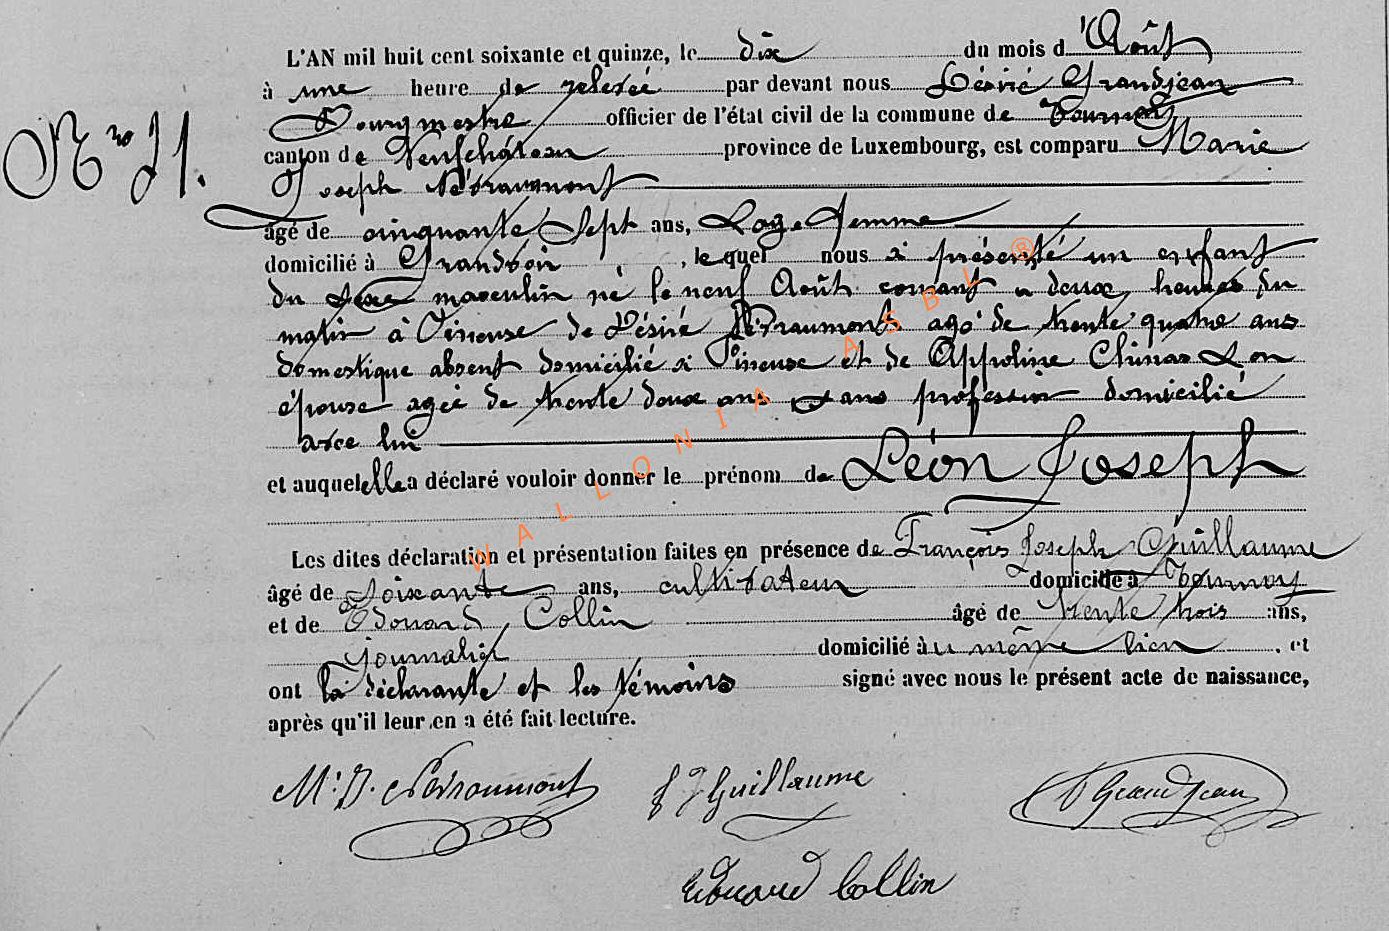 L'AN mil huit cent soixante et quinze, le dix du mois d'Août
à une heure de relevée par devant nous Désiré Grandjean
Bourgmestre officier de l'état civil de la commune de Tournay
canton de Neufchâteau province de Luxembourg, est comparu Marie
Nro 21.
Joseph
âgé de cinquante Sept ans, Sage-femme
domicilié à Grandvoir, lequel nous a présenté un enfant
du sexe masculin né le neuf Août courant à deux heures du
matin à Vineuse de Désiré agé de trente quatre ans
domestique absent domicilié à Vineuse et de Appoline Son
épouse agée de trente deux ans Sans profession domicilié
avec lui
et auquel elle a déclaré vouloir donner le prénom de Léon Joseph
Les dites déclaration et présentation faites en présence de François Joseph Guillaume
âgé de Soixante ans, cultivateur domicilié à Tournay
et de Edouard Collin âgé de trente trois ans,
journalier domicilié au même lieu, et
ont la déclarante et les témoins signé avec nous le présent acte de naissance,
après qu'il leur en a été fait lecture.
M: J. F J Guillaume D Grandjean
Edouard Collin
WALLONIA ASBL ®